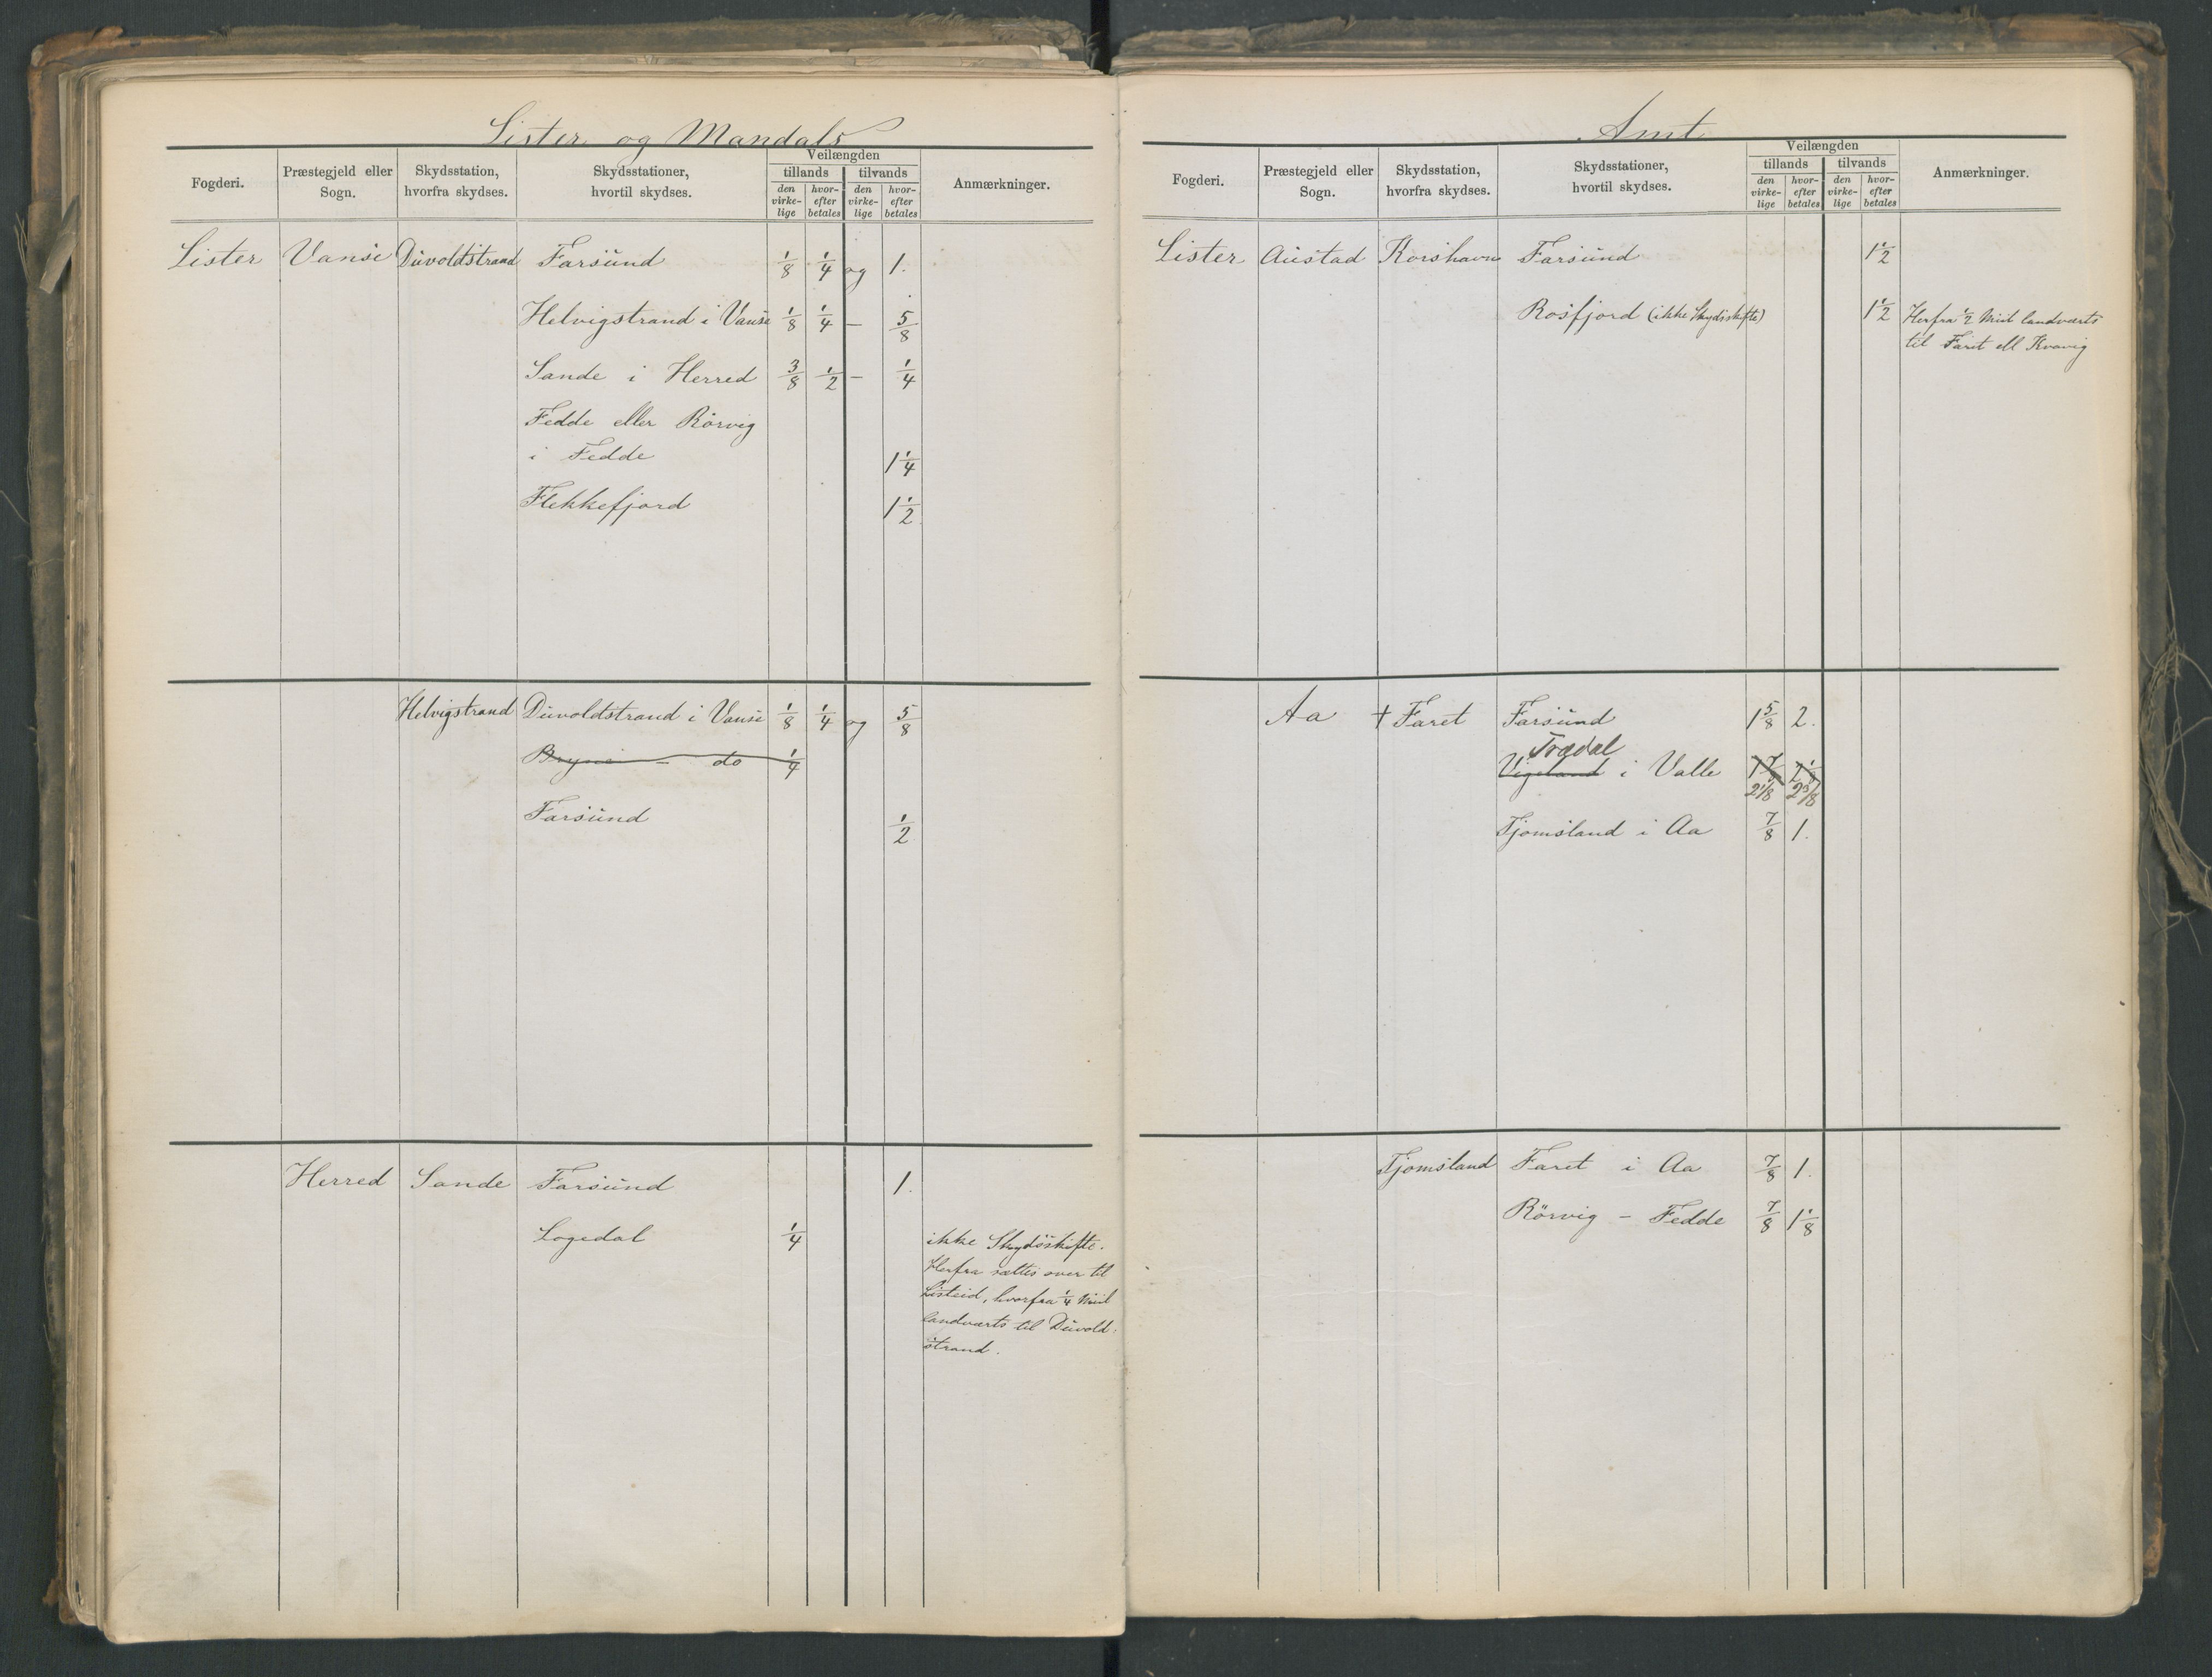 Lister og Mandals
Fogderi. Præstegjeld eller Sogn. Skydsstation, hvorfra skydses. Skydsstationer, hvortil skydses. Veilængden Anmærkninger.
tillands tilvands
den virke-lige hvor-efter betales den virke-lige hvor-efter betales
Lister Vanse Duvoldstrand Farsund 1/8 1/4 og 1.
Helvigstrand i Vanse 1/8 1/4 — 5/8
Sande i Herred 3/8 1/2 — 1/4
Fedde eller Rörvig
i Fedde 1 1/4
Flekkefjord 1 1/2
Helvigstrand Duvoldstrand i Vanse 1/8 1/4 og 5/8
Bryne — do 1/4
Farsund 1/2
Herred Sande Farsund 1.
Logedal 1/4 ikke Skydsskifte.
Herfra sættes over til
Listeid, hvorfra 1/4 Miil
landværts til Duvold-
strand.
Amt
Fogderi. Præstegjeld eller Sogn. Skydsstation, hvorfra skydses. Skydsstationer, hvortil skydses. Veilængden Anmærkninger.
tillands tilvands
den virke-lige hvor-efter betales den virke-lige hvor-efter betales
Lister Austad Korshavn Farsund 1 1/2
Rosfjord (ikke Skydsskifte) 1 1/2 Herfra 1/2 Miil landværts
til Faret ell Kvavig
Aa † Faret Farsund 1 5/8 2.
Trædal
Vigeland i Valle 1 7/8
2 1/8 2 3/8
Tjomsland i Aa 7/8 1.
Tjomsland Faret i Aa 7/8 1.
Rörvig — Fedde 7/8 1 1/8